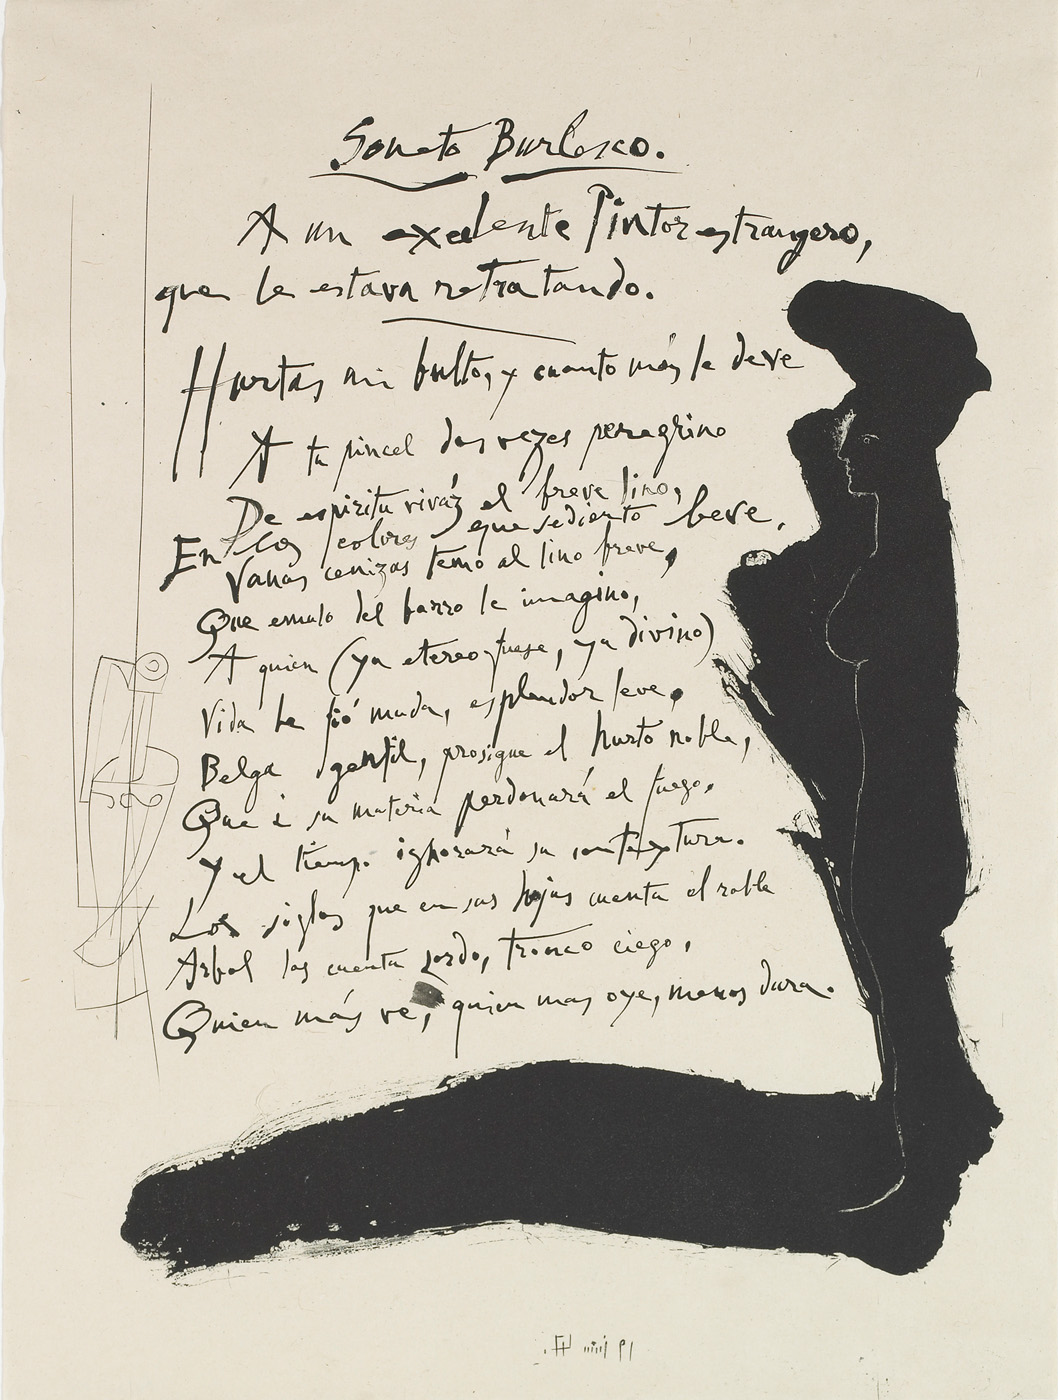 Soneto Burlesco.
A un exelente Pintor estrangero,
que le estava retratando.
Hurtas mi bulto, y cuanto más le deve
A tu pincel dos vezes peregrino
De espiritu viváz el breve lino,
En los colores que sediento beve.
Vanas cenizas temo al lino breve,
Que emulo del barro le imagino,
A quien (ya etereo fuese, ya divino)
Vida le fió muda, esplendor leve.
Belga gentil, prosigue el hurto noble,
Que a su materia perdonará el fuego,
Y el tiempo ignorará su contextura.
Los siglos que en sus hojas cuenta el roble
Arbol los cuenta sordo, tronco ciego,
Quien más ve, quien mas oye, menos dura.